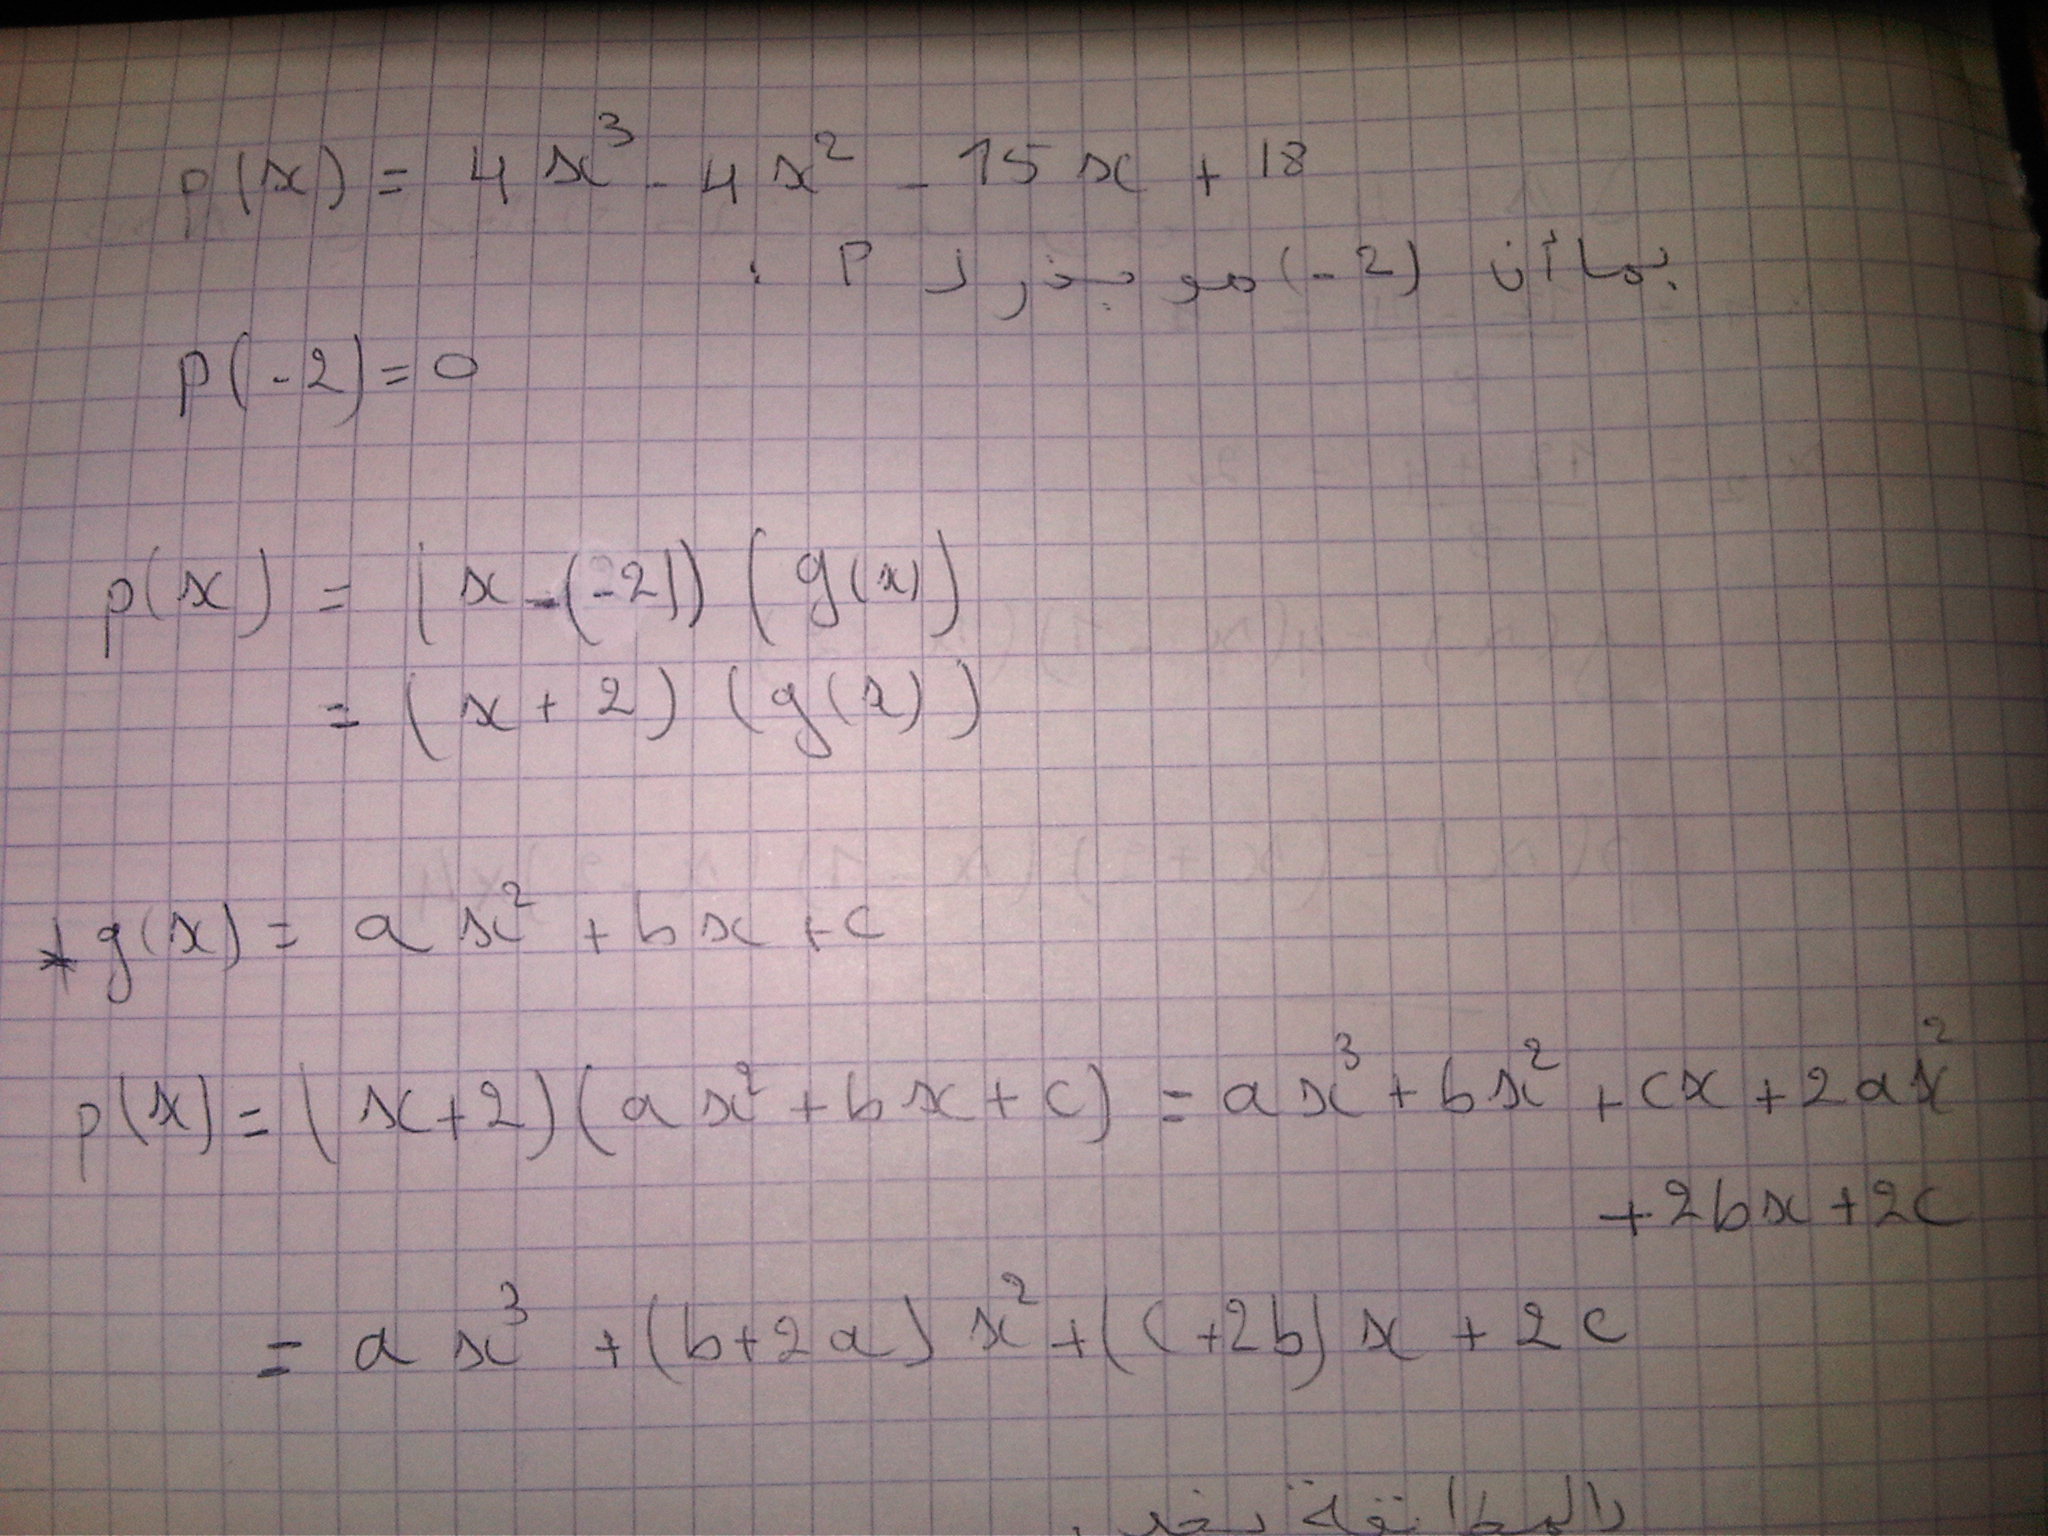 p(x) = 4x³ - 4x² - 15x + 18
بما أن (-2) هو جذر لـ P :
p(-2) = 0
p(x) = (x - (-2)) (g(x))
= (x + 2) (g(x))
* g(x) = ax² + bx + c
p(x) = (x+2)(ax² + bx + c) = ax³ + bx² + cx + 2ax²
+ 2bx + 2c
= ax³ + (b+2a)x² + (c+2b)x + 2c
بالمطابقة نجد :